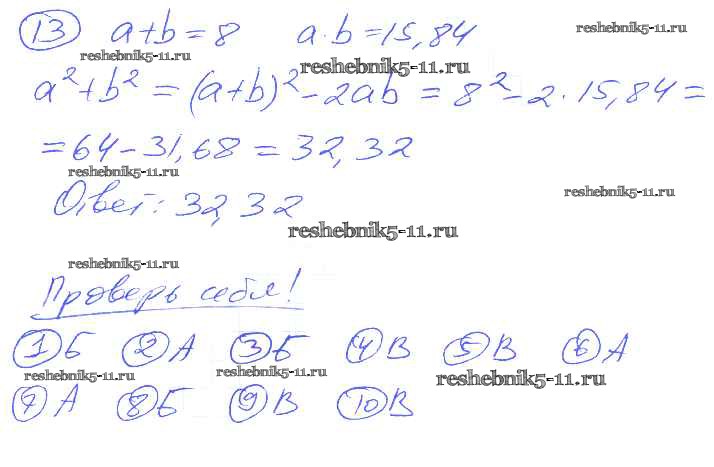 13 a+b=8 a·b=15,84
reshebnik5-11.ru reshebnik5-11.ru reshebnik5-11.ru
a²+b² = (a+b)²-2ab = 8²-2·15,84=
=64-31,68 = 32,32
reshebnik5-11.ru
Ответ: 32,32
reshebnik5-11.ru
reshebnik5-11.ru
reshebnik5-11.ru
Проверь себя!
1 Б 2 А 3 Б 4 В 5 В 6 А
reshebnik5-11.ru reshebnik5-11.ru reshebnik5-11.ru
7 А 8 Б 9 В 10 В